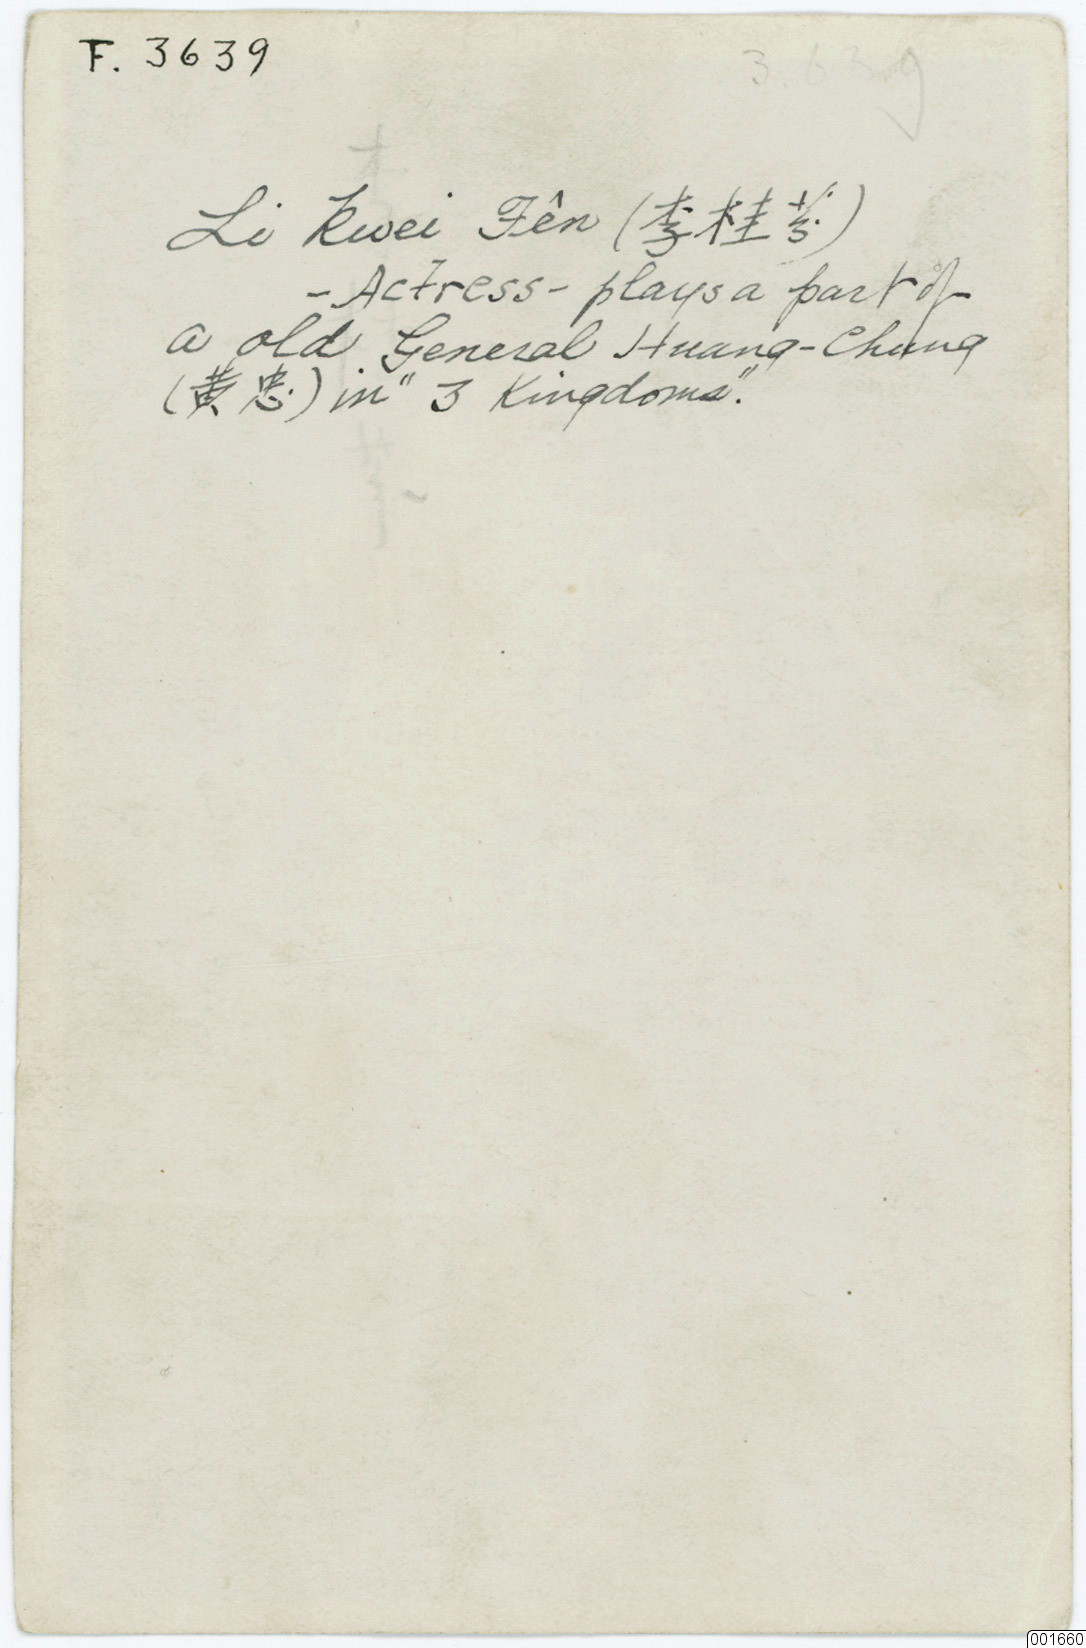 F. 3639
3.639
Li Kwei Fên (李桂芬)
- Actress - plays a part of
a old General Huang-Chung
(黄忠) in "3 Kingdoms".
001660